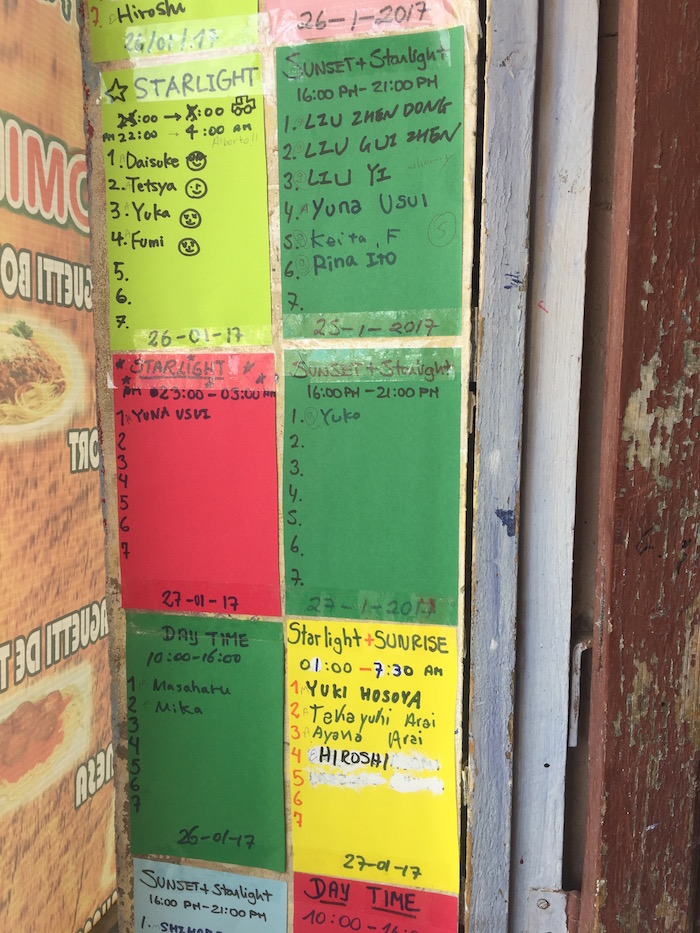 7. Hiroshi
26/01/.17
26-1-2017
STARLIGHT
22:00 → 4:00 AM
1. Daisuke
2. Tetsya
3. Yuka
4. Fumi
5.
6.
7.
26-01-17
SUNSET + Starlight
16:00 PM - 21:00 PM
1. LIU ZHEN DONG
2. LIU GUI ZHEN
3. LIU YI
4. Yuna USUI
5. Keita, F
6. Rina Ito
7.
25-1-2017
STARLIGHT
23:00 - 05:00 AM
1 YUNA USUI
2
3
4
5
6
7
27-01-17
SUNSET + Starlight
16:00 PM - 21:00 PM
1. Yuko
2.
3.
4.
5.
6.
7.
27-1-2017
DAY TIME
10:00-16:00
1 Masaharu
2 Mika
3
4
5
6
7
26-01-17
Starlight + SUNRISE
01:00 - 7:30 AM
1 YUKI HOSOYA
2 Takayuki Arai
3 Ayana Arai
4 HIROSHI
5
6
7
27-01-17
SUNSET + Starlight
16:00 PM - 21:00 PM
DAY TIME